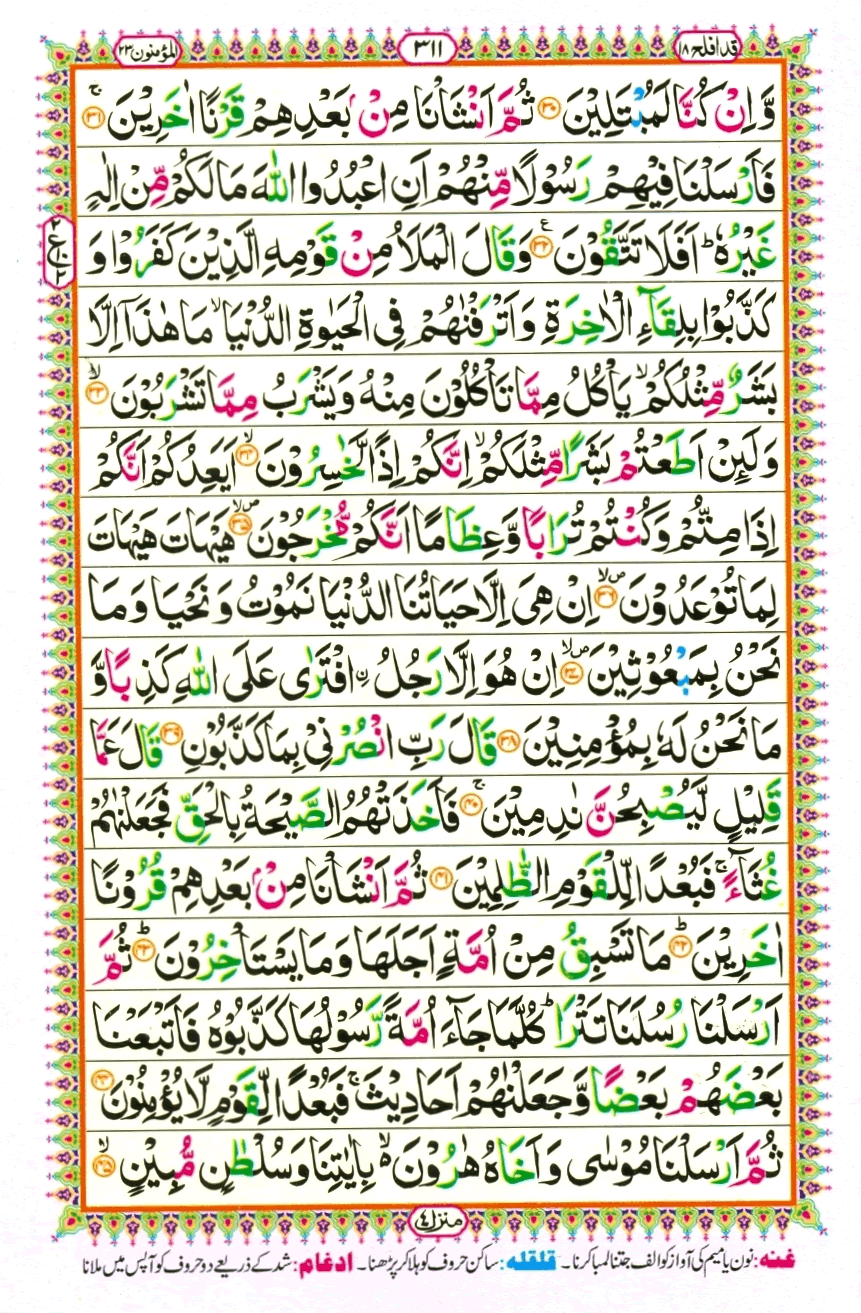 قد افلح ١٨
٣١١
المؤمنون ٢٣
وَّاِنْ كُنَّا لَمُبْتَلِيْنَ ﴿۳۰﴾ ثُمَّ اَنْشَاْنَا مِنْۢ بَعْدِهِمْ قَرْنًا اٰخَرِيْنَ ۚ﴿۳۱﴾
فَاَرْسَلْنَا فِيْهِمْ رَسُوْلًا مِّنْهُمْ اَنِ اعْبُدُوا اللّٰهَ مَا لَكُمْ مِّنْ اِلٰهٍ
غَيْرُهٗ ؕ اَفَلَا تَتَّقُوْنَ ﴿۳۲﴾ ع وَقَالَ الْمَلَاُ مِنْ قَوْمِهِ الَّذِيْنَ كَفَرُوْا وَ
كَذَّبُوْا بِلِقَآءِ الْاٰخِرَةِ وَاَتْرَفْنٰهُمْ فِى الْحَيٰوةِ الدُّنْيَا ۙ مَا هٰذَاۤ اِلَّا
بَشَرٌ مِّثْلُكُمْ ۙ يَاْكُلُ مِمَّا تَاْكُلُوْنَ مِنْهُ وَيَشْرَبُ مِمَّا تَشْرَبُوْنَ ۙ﴿۳۳﴾
وَلَئِنْ اَطَعْتُمْ بَشَرًا مِّثْلَكُمْ ۙ اِنَّكُمْ اِذًا لَّخٰسِرُوْنَ ۙ﴿۳۴﴾ اَيَعِدُكُمْ اَنَّكُمْ
اِذَا مِتُّمْ وَكُنْتُمْ تُرَابًا وَّعِظَامًا اَنَّكُمْ مُّخْرَجُوْنَ ۙ﴿۳۵﴾ هَيْهَاتَ هَيْهَاتَ
لِمَا تُوْعَدُوْنَ ۙ﴿۳۶﴾ اِنْ هِىَ اِلَّا حَيَاتُنَا الدُّنْيَا نَمُوْتُ وَنَحْيَا وَمَا
نَحْنُ بِمَبْعُوْثِيْنَ ۙ﴿۳۷﴾ اِنْ هُوَ اِلَّا رَجُلُ اۨفْتَرٰى عَلَى اللّٰهِ كَذِبًا وَّ
مَا نَحْنُ لَهٗ بِمُؤْمِنِيْنَ ﴿۳۸﴾ قَالَ رَبِّ انْصُرْنِىْ بِمَا كَذَّبُوْنِ ﴿۳۹﴾ قَالَ عَمَّا
قَلِيْلٍ لَّيُصْبِحُنَّ نٰدِمِيْنَ ۚ﴿۴۰﴾ فَاَخَذَتْهُمُ الصَّيْحَةُ بِالْحَقِّ فَجَعَلْنٰهُمْ
غُثَآءً ۚ فَبُعْدًا لِّلْقَوْمِ الظّٰلِمِيْنَ ﴿۴۱﴾ ثُمَّ اَنْشَاْنَا مِنْۢ بَعْدِهِمْ قُرُوْنًا
اٰخَرِيْنَ ؕ﴿۴۲﴾ مَا تَسْبِقُ مِنْ اُمَّةٍ اَجَلَهَا وَمَا يَسْتَاْخِرُوْنَ ؕ﴿۴۳﴾ ثُمَّ
اَرْسَلْنَا رُسُلَنَا تَتْرَا ؕ كُلَّمَا جَآءَ اُمَّةً رَّسُوْلُهَا كَذَّبُوْهُ فَاَتْبَعْنَا
بَعْضَهُمْ بَعْضًا وَّجَعَلْنٰهُمْ اَحَادِيْثَ ۚ فَبُعْدًا لِّقَوْمٍ لَّا يُؤْمِنُوْنَ ﴿۴۴﴾
ثُمَّ اَرْسَلْنَا مُوْسٰى وَاَخَاهُ هٰرُوْنَ ۙ۬ بِاٰيٰتِنَا وَسُلْطٰنٍ مُّبِيْنٍ ۙ﴿۴۵﴾
منزل ۴
غنه: نون یا میم کی آواز کو الف جتنا لمبا کرنا۔ قلقله: ساکن حروف کو ہلا کر پڑھنا۔ ادغام: شد کے ذریعے دو حروف کو آپس میں ملانا